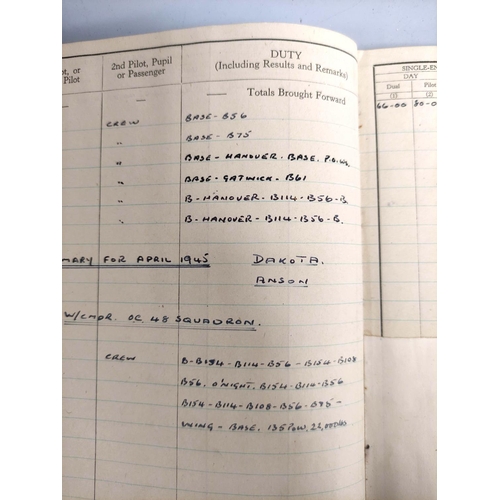 t, or
Pilot
2nd Pilot, Pupil
or Passenger
DUTY
(Including Results and Remarks)
SINGLE-EN
DAY
Dual Pilot
(1) (2)
— — Totals Brought Forward
66-00 80-0
CREW BASE - B56
" BASE - B75
" BASE - HANOVER. BASE. P.O.Ws.
" BASE - GATWICK - B61
" B - HANOVER - B114 - B56 - B.
" B - HANOVER - B114 - B56 - B.
MARY FOR APRIL 1945 DAKOTA.
ANSON
W/CMDR. OC 48 SQUADRON.
CREW B - B154 - B114 - B56 - B154 - B108
B56. O'NIGHT. B154 - B114 - B56
B154 - B114 - B108 - B56 - B75 -
WING - BASE. 135 POW,